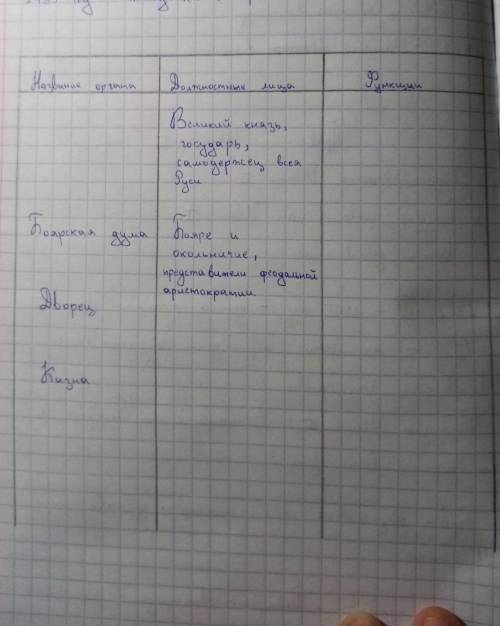 Название органа
Должностные лица
Функции
Великий князь,
государь,
самодержец всея
Руси
Боярская дума
Бояре и
окольничие,
представители феодальной
аристократии.
Дворец
Казна